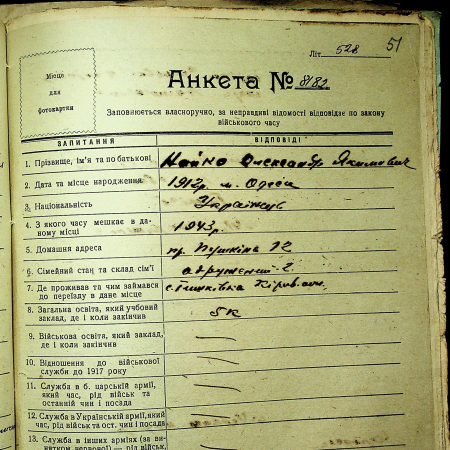 51
Літ. 528
Місце
для
фотокартки
Анкета № 8182
Заповнюється власноручно, за неправдиві відомості відповідає по закону
військового часу
ЗАПИТАННЯ ВІДПОВІДІ
1. Прізвище, ім'я та по батькові Олександр Якимович
2. Дата та місце народження 1912р. м. Одеса
3. Національність Українець
4. З якого часу мешкає в да-
ному місці 1943р.
5. Домашня адреса пр. Пушкіна 12
6. Сімейний стан та склад сім'ї одружений 2.
7. Де проживав та чим займався
до переїзду в дане місце
8. Загальна освіта, який учбовий
заклад, де і коли закінчив 5 к
9. Військова освіта, який заклад,
де і коли закінчив —
10. Відношення до військової
служби до 1917 року —
11. Служба в б. царській армії,
який час, рід військ та
останній чин і посада —
12. Служба в Українській армії, який
час, рід військ та ост. чин і посада —
13. Служба в інших арміях (за ви-
нятком червоної) — рід військ, —